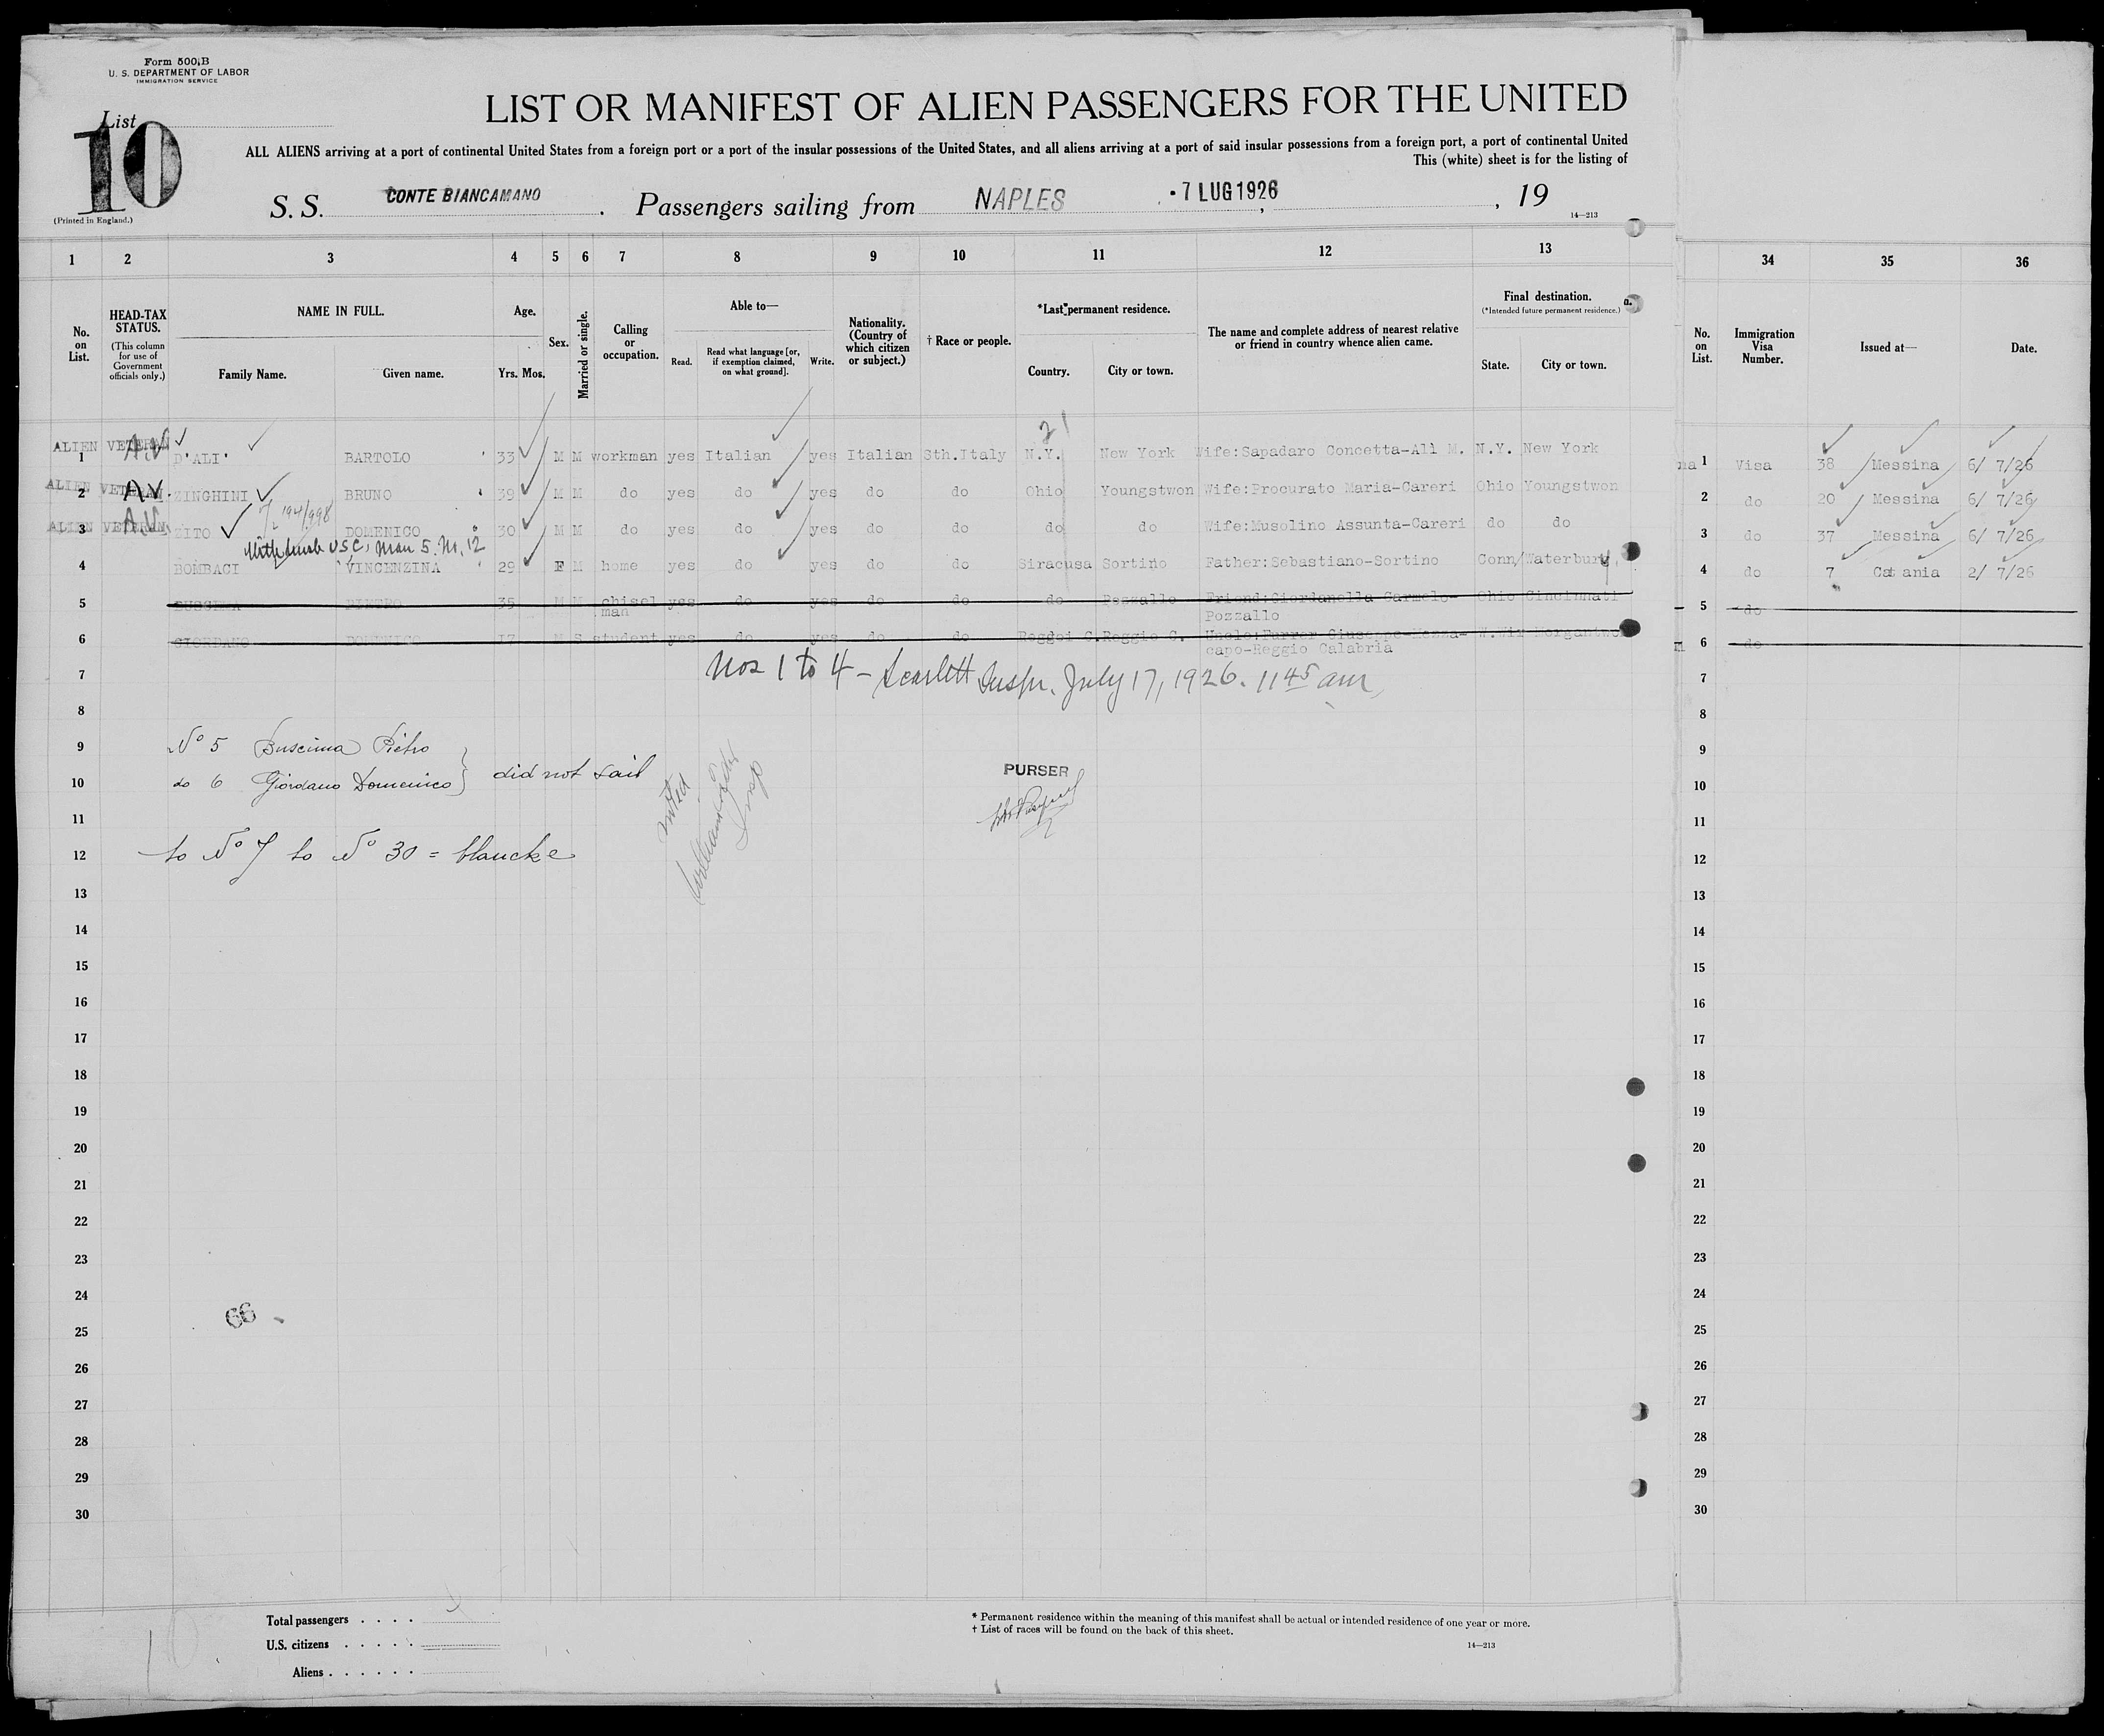 Form 500,B
U. S. DEPARTMENT OF LABOR
IMMIGRATION SERVICE
List
10
(Printed in England.)
LIST OR MANIFEST OF ALIEN PASSENGERS FOR THE UNITED
ALL ALIENS arriving at a port of continental United States from a foreign port or a port of the insular possessions of the United States, and all aliens arriving at a port of said insular possessions from a foreign port, a port of continental United
This (white) sheet is for the listing of
S. S. CONTE BIANCAMANO . Passengers sailing from NAPLES 7 LUG 1926 , 19
14—213
1 2 3 4 5 6 7 8 9 10 11 12 13 34 35 36
No. on List.
HEAD-TAX STATUS.
(This column for use of Government officials only.)
NAME IN FULL.
Family Name. Given name.
Age.
Yrs. Mos.
Sex.
Married or single.
Calling or occupation.
Able to—
Read. Read what language [or, if exemption claimed, on what ground]. Write.
Nationality. (Country of which citizen or subject.)
† Race or people.
*Last permanent residence.
Country. City or town.
The name and complete address of nearest relative or friend in country whence alien came.
Final destination.
(*Intended future permanent residence.)
State. City or town.
No. on List.
Immigration Visa Number.
Issued at—
Date.
21
ALIEN VETERAN AV
1 D'ALI' BARTOLO 33 M M workman yes Italian yes Italian Sth.Italy N.Y. New York Wife:Sapadaro Concetta-Alì M. N.Y. New York 1 Visa 38 Messina 6/ 7/26
ALIEN VETERAN AV.
2 ZINGHINI BRUNO 39 M M do yes do yes do do Ohio Youngstwon Wife:Procurato Maria-Careri Ohio Youngstwon 2 do 20 Messina 6/ 7/26
7/194/998
ALIEN VETERAN AV
3 TITO DOMENICO 30 M M do yes do yes do do do do Wife:Musolino Assunta-Careri do do 3 do 37 Messina 6/ 7/26
With husb USC, Man 5. No. 12
4 BOMBACI VINCENZINA 29 F M home yes do yes do do Siracusa Sortino Father:Sebastiano-Sortino Conn/ Waterbury 4 do 7 Catania 2/ 7/26
5 BUSCEMA PIETRO 35 M M chisel man yes do yes do do do Pozzallo Friend:Giordanella Carmelo-Pozzallo Ohio Cincinnati 5 do
6 GIORDANO DOMENICO 17 M S student yes do yes do do Reggoi C. Reggio C. capo-Reggio Calabria 6 do
Nos 1 to 4 - Scarlett Inspr. July 17, 1926. 11 45 am
7 7
8 8
9 No 5 Buscema Pietro 9
10 do 6 Giordano Domenico } did not sail 10
noted
Insp
PURSER
11 11
12 to No 7 to No 30 = blancke 12
13 13
14 14
15 15
16 16
17 17
18 18
19 19
20 20
21 21
22 22
23 23
24 24
66 -
25 25
26 26
27 27
28 28
29 29
30 30
Total passengers . . . .
U.S. citizens . . . . .
Aliens . . . . . .
* Permanent residence within the meaning of this manifest shall be actual or intended residence of one year or more.
† List of races will be found on the back of this sheet.
14—213
10